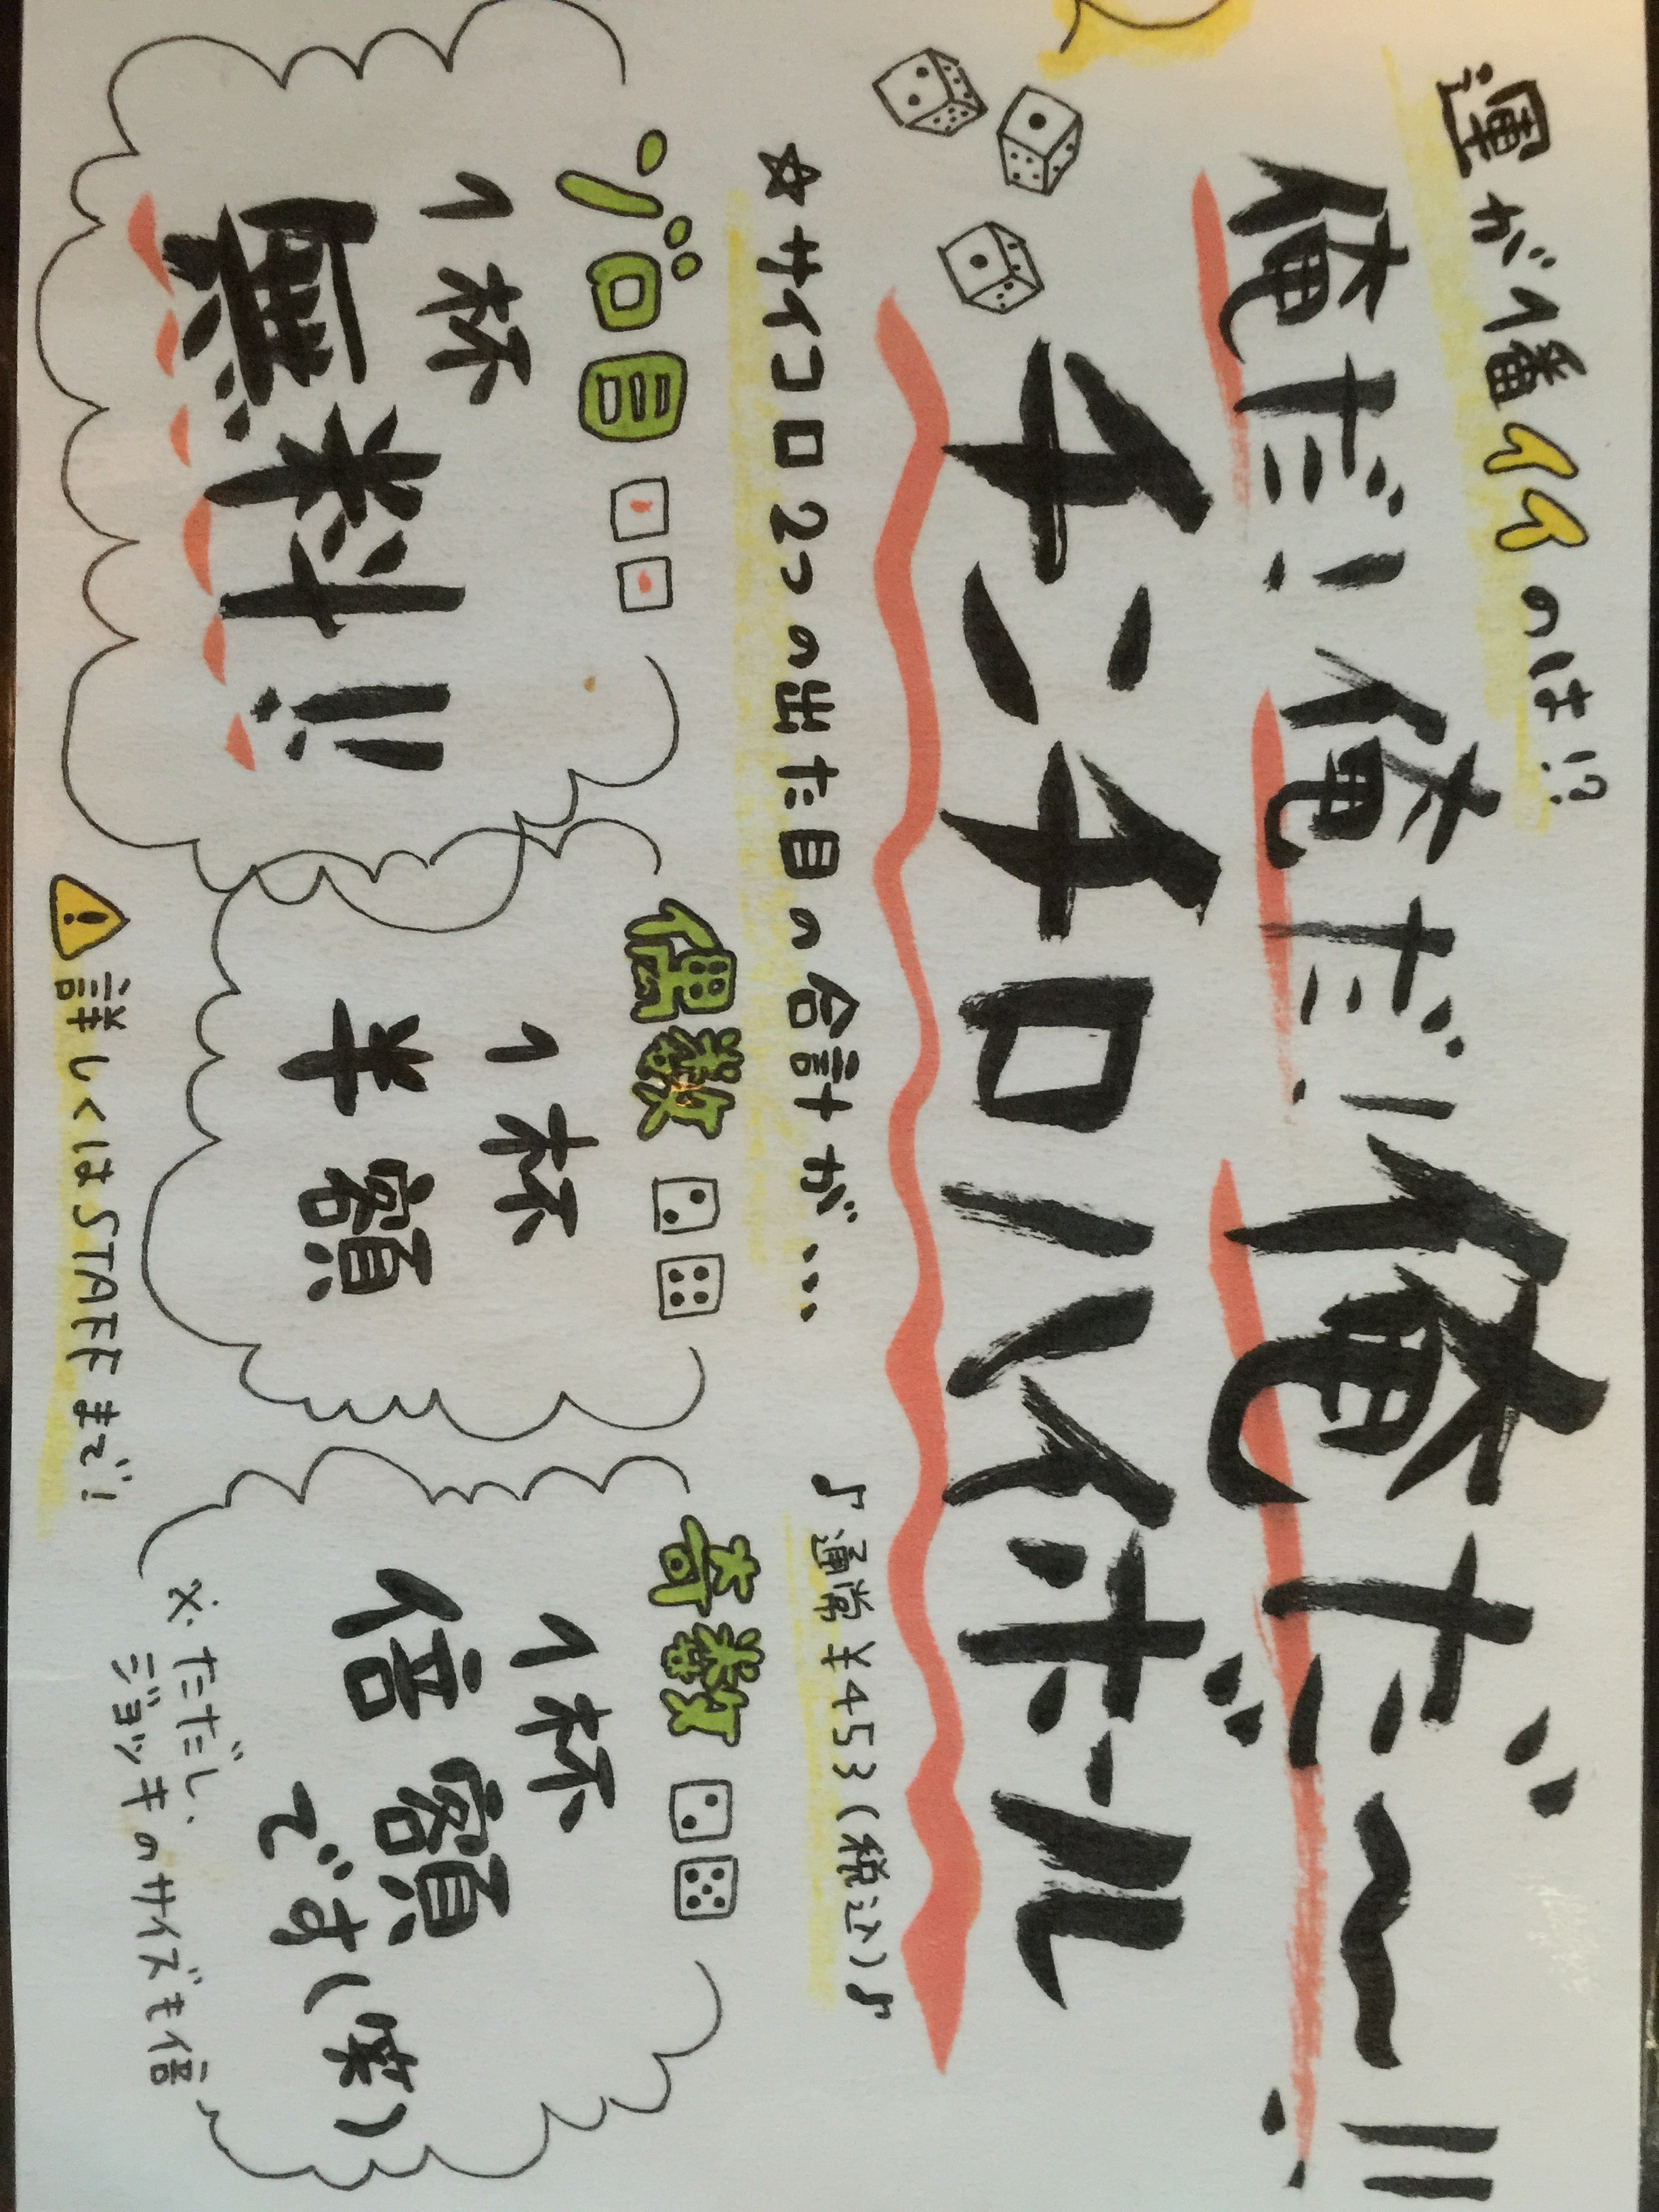 運が1番イイのは!?
俺だ!!俺だ!!俺だ〜!!
チンチロハイボール
♪通常¥453(税込)♪
☆サイコロ2つの出た目の合計が...
ゾロ目
1杯
無料!!
偶数
1杯
半額
奇数
1杯
倍額
です(笑)
※ただし、
ジョッキのサイズも倍
詳しくはSTAFFまで!